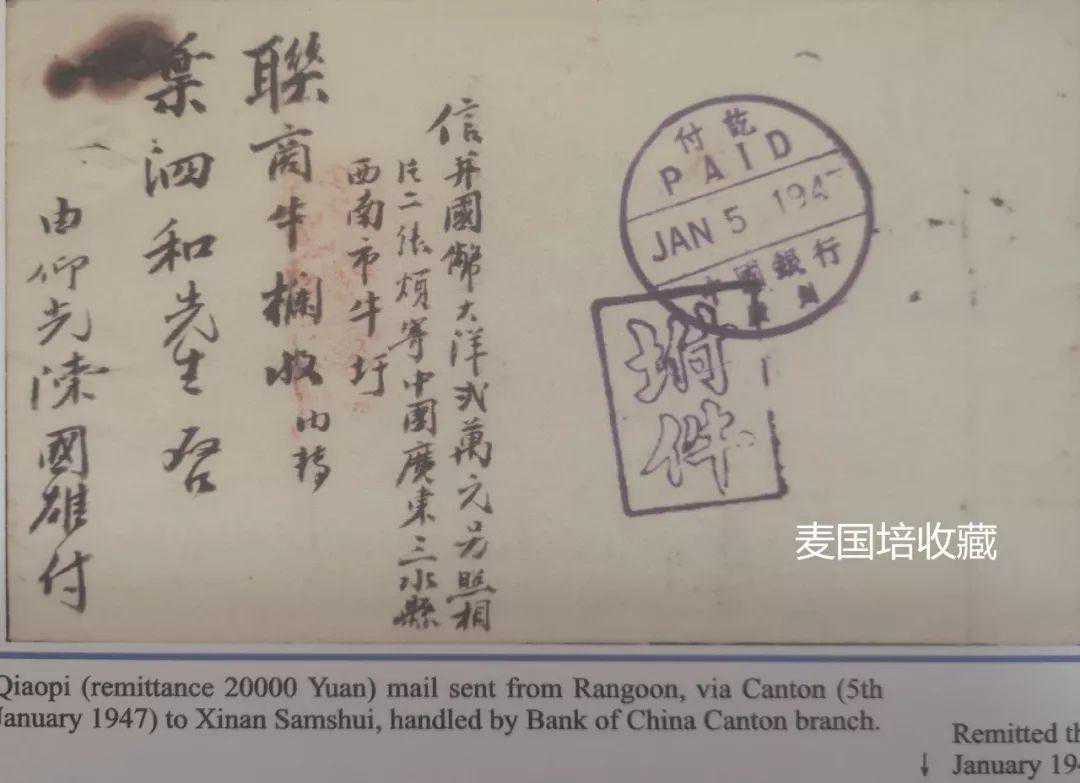 信并國幣大洋弍萬元另照相
片二張煩寄中國廣東三水縣
西南市牛圩
聯商牛欄收内轉
葉泗和先生啓
由仰光陳國雄付
付訖
PAID
JAN 5 1947
中國銀行
廣州
件
麦国培收藏
Qiaopi (remittance 20000 Yuan) mail sent from Rangoon, via Canton (5th
January 1947) to Xinan Samshui, handled by Bank of China Canton branch.
Remitted th
↓ January 194